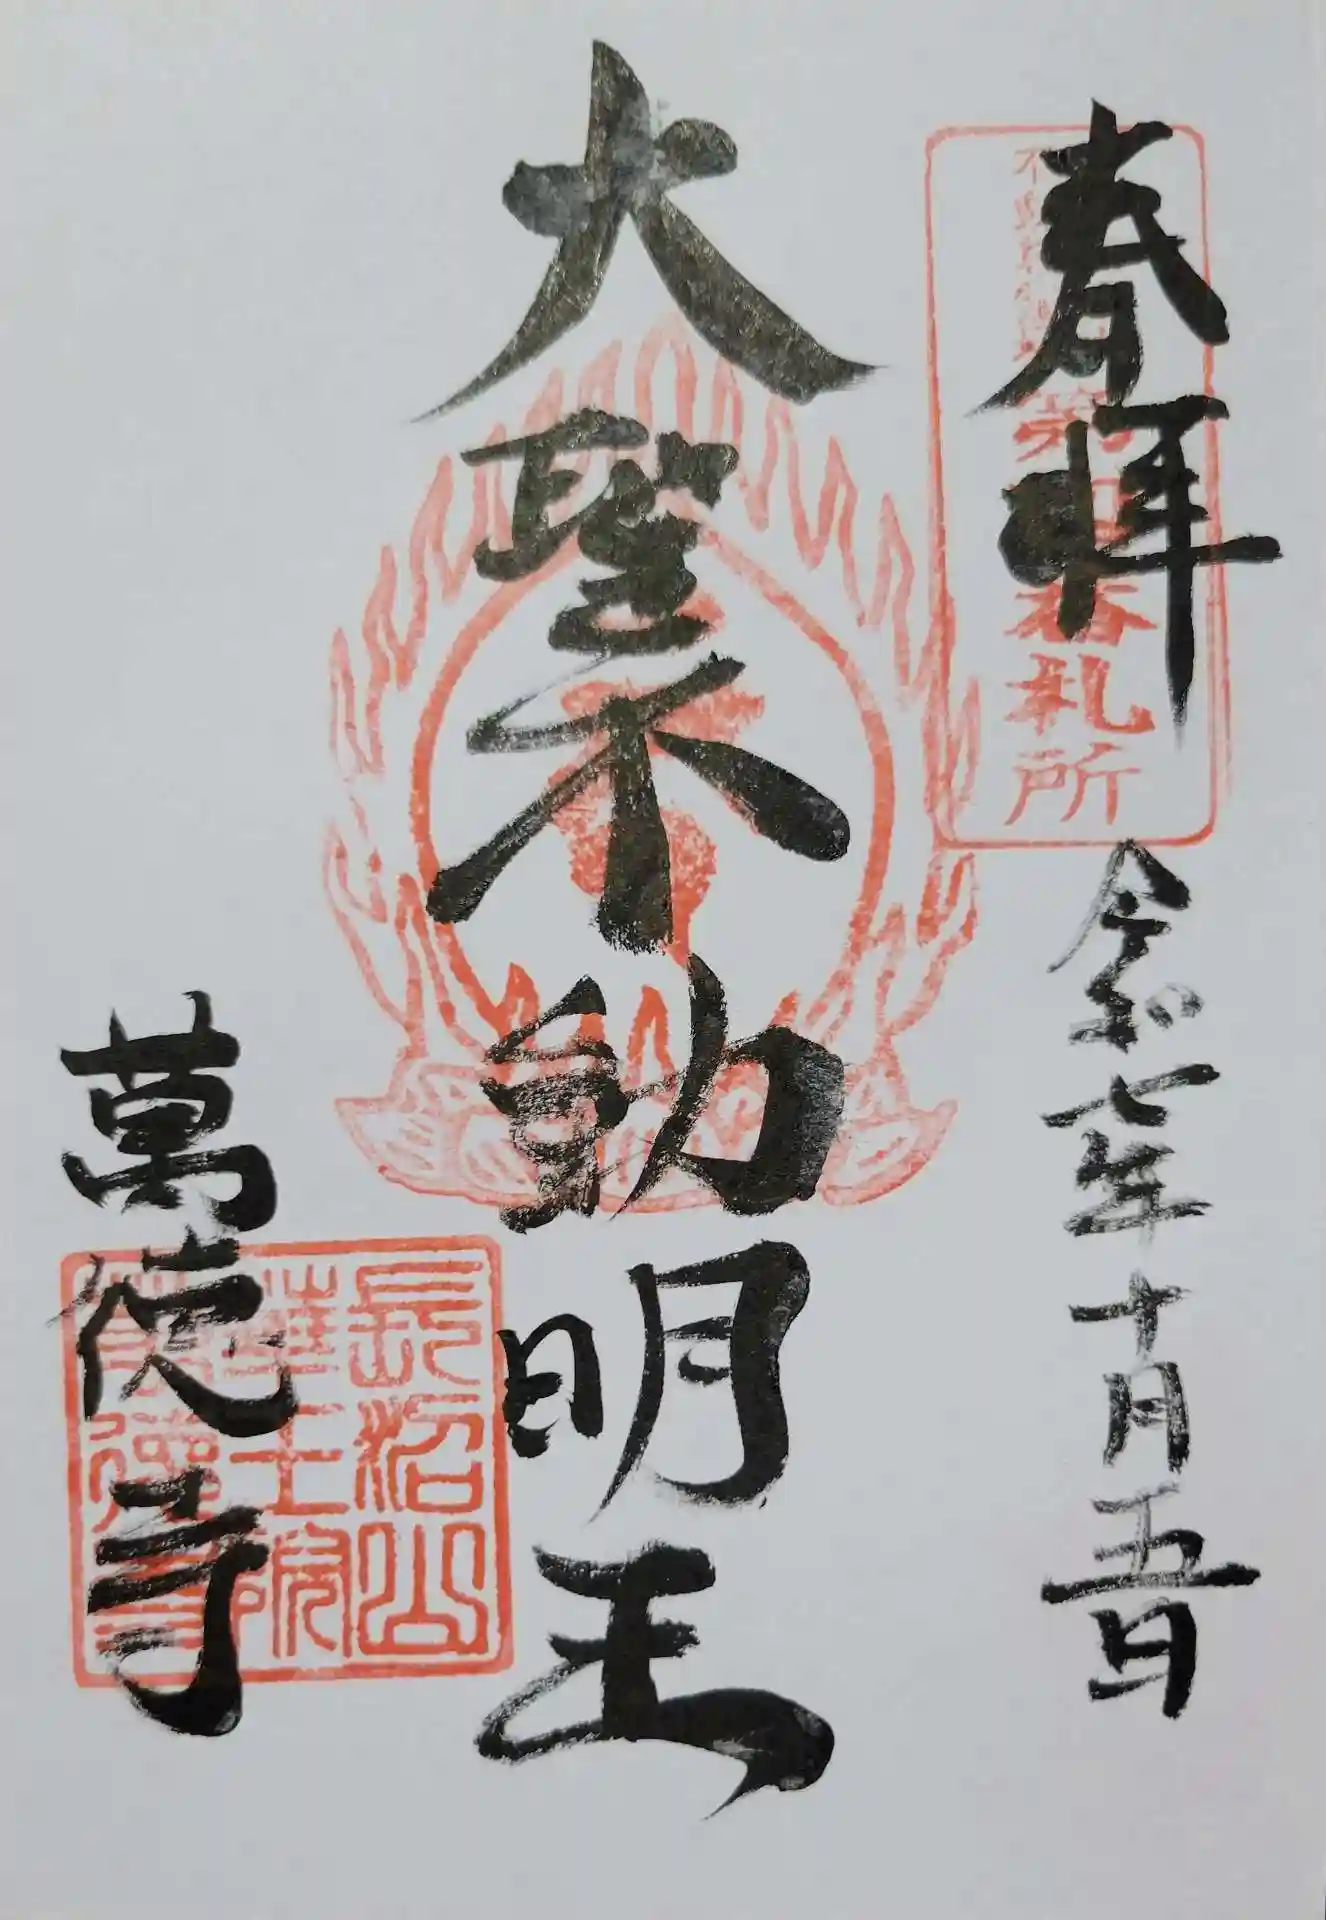 奉拝
第
番札所
令和七年十月五日
大聖不動明王
長沼山
華王院
萬徳寺
萬德寺